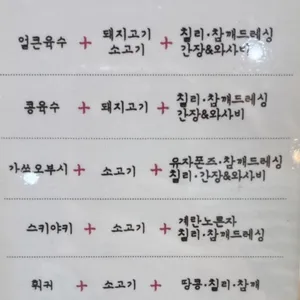 얼큰육수 + 돼지고기 소고기 + 칠리·참깨드레싱 간장&와사비
콩육수 + 돼지고기 + 칠리·참깨드레싱 간장&와사비
가쓰오부시 + 소고기 + 유자폰즈·참깨드레싱 칠리·간장&와사비
스키야키 + 소고기 + 계란노른자 칠리·참깨드레싱
훠커 + 소고기 + 땅콩·칠리·참깨